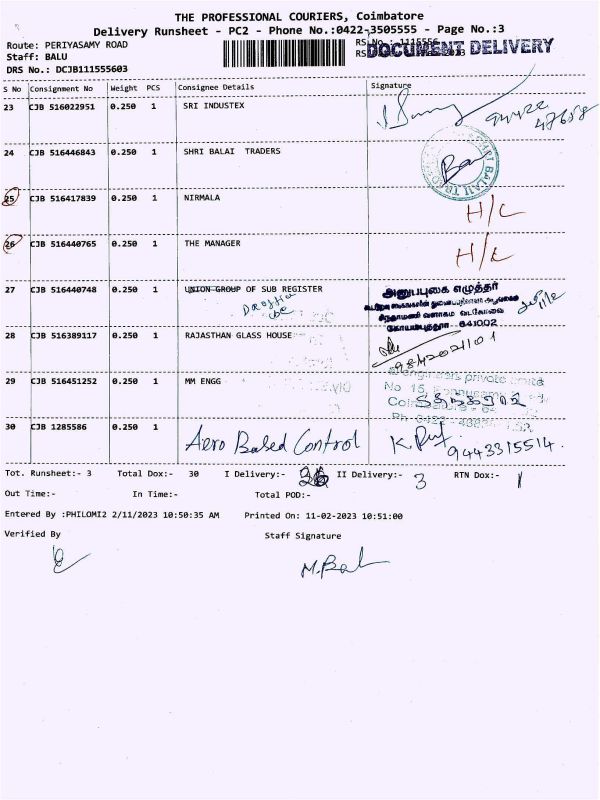 THE PROFESSIONAL COURIERS, Coimbatore
Delivery Runsheet - PC2 - Phone No.:0422-3505555 - Page No.:3
Route: PERIYASAMY ROAD
RS No.: 1115556
DOCUMENT DELIVERY
Staff: BALU
DRS No.: DCJB111555603
S No Consignment No Weight PCS Consignee Details Signature
23 CJB 516022951 0.250 1 SRI INDUSTEX
24 CJB 516446843 0.250 1 SHRI BALAI TRADERS
25 CJB 516417839 0.250 1 NIRMALA H/C
26 CJB 516440765 0.250 1 THE MANAGER H/C
27 CJB 516440748 0.250 1 UNION GROUP OF SUB REGISTER
அனுபபுகை எழுத்தர்
கோயம்புத்தூர் 641002
28 CJB 516389117 0.250 1 RAJASTHAN GLASS HOUSE
9842021101
29 CJB 516451252 0.250 1 MM ENGG
engineers private limited
No 15,
30 CJB 1285586 0.250 1 Aero Based Control
9443315514
Tot. Runsheet:- 3 Total Dox:- 30 I Delivery:- 26 II Delivery:- 3 RTN Dox:- 1
Out Time:- In Time:- Total POD:-
Entered By :PHILOMI2 2/11/2023 10:50:35 AM Printed On: 11-02-2023 10:51:00
Verified By Staff Signature
M.Bal